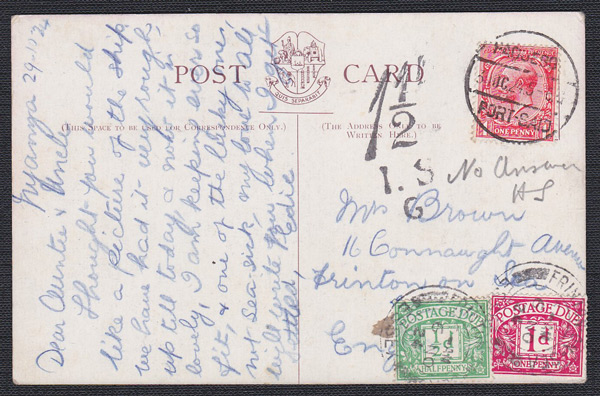 Nyanza 29-11-24
Dear Auntie & Uncle
I thought you would
like a picture of the ship
we have had it very rough,
up till today & now it is
lovely, I am keeping ever so
fit, & one of the lucky ones,
not sea sick, my love to all
will write you when I get
settled, Eddie
POST CARD
QUIS SEPARABIT
(THIS SPACE TO BE USED FOR CORRESPONDENCE ONLY.)
(THE ADDRESS ONLY TO BE
WRITTEN HERE.)
PAQUEBOT
PORT-SAID
ONE PENNY
1½
I.S
G
No Answer
HS
Mrs Brown
16 Connaught Avenue
Frinton on Sea
POSTAGE DUE
½d
HALFPENNY
POSTAGE DUE
1d
ONE PENNY